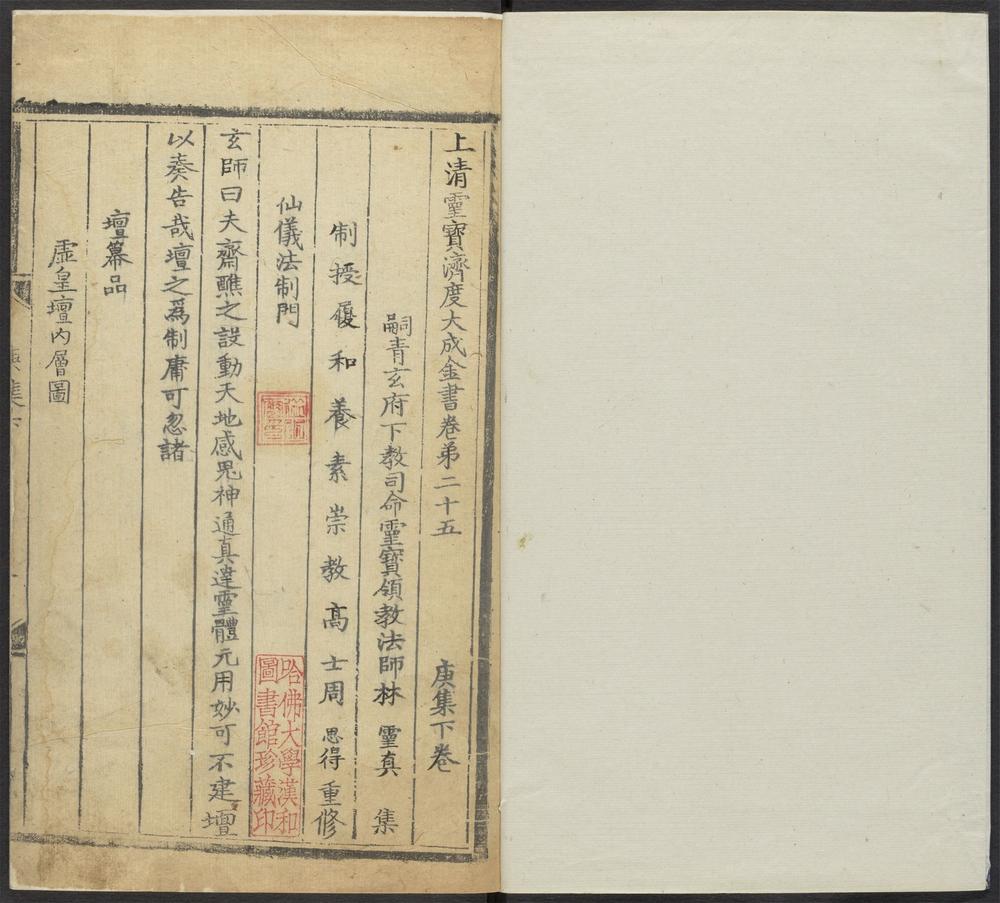 上清靈寶濟度大成金書卷弟二十五 庚集下卷
嗣青玄府下教司命靈寶領教法師林 靈真 集
制授履和養素崇教高士周 思得 重修
仙儀法制門
玄師曰夫齋醮之設動天地感鬼神通真達靈體元用妙可不建壇
以奏告哉壇之爲制庸可忽諸
壇幕品
虛皇壇內層圖
哈佛大學漢和
圖書館珍藏印